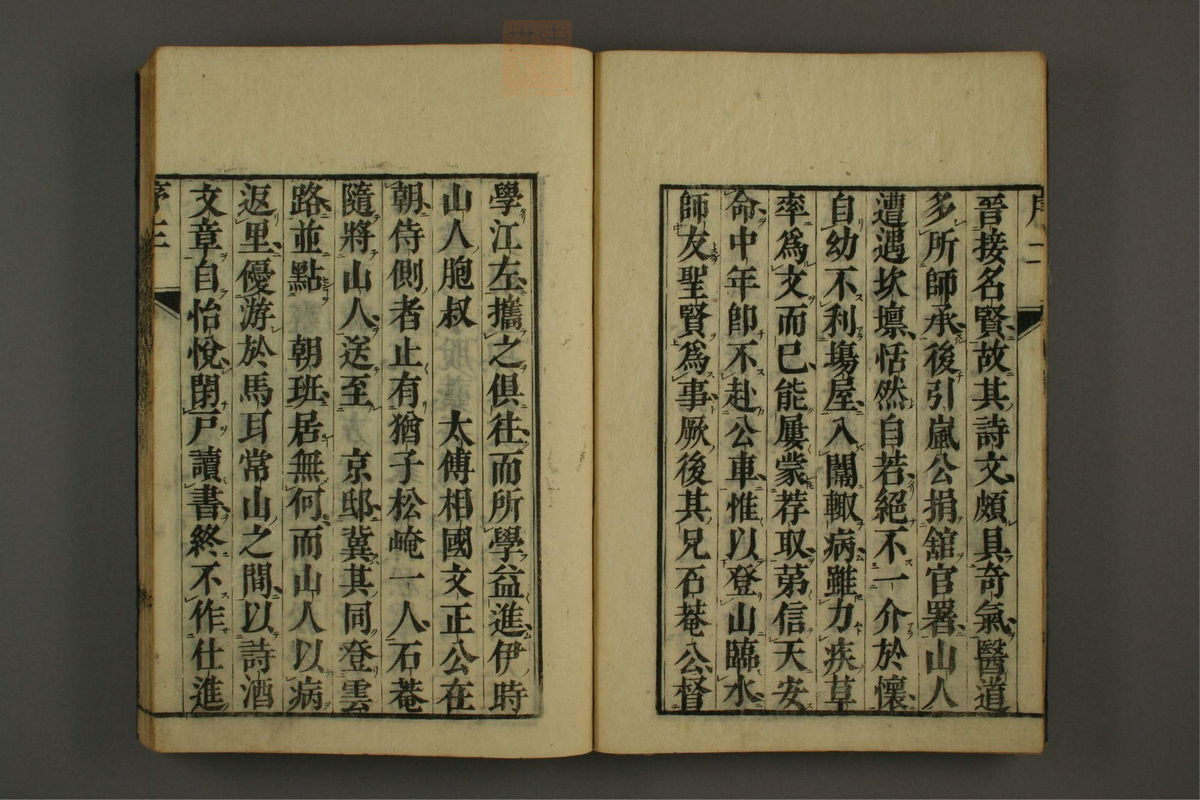 序二
晉接名賢故其詩文頗具奇氣醫道
多所師承後引嵐公捐舘官署山人
遭遇坎壈恬然自若絕不一介於懷
自幼不利塲屋入闈輙病雖力疾草
率爲文而已能屢蒙荐取苐信天安
命中年卽不赴公車惟以登山臨水
師友聖賢爲事厥後其兄石菴公督
學江左攜之俱往而所學益進伊時
山人胞叔　太傅相國文正公在
朝侍側者止有猶子松崦一人石菴
隨將山人送至　京邸冀其同登雲
路並點　朝班居無何而山人以病
返里優游於馬耳常山之間以詩酒
文章自怡悅閉戶讀書終不作仕進
序三